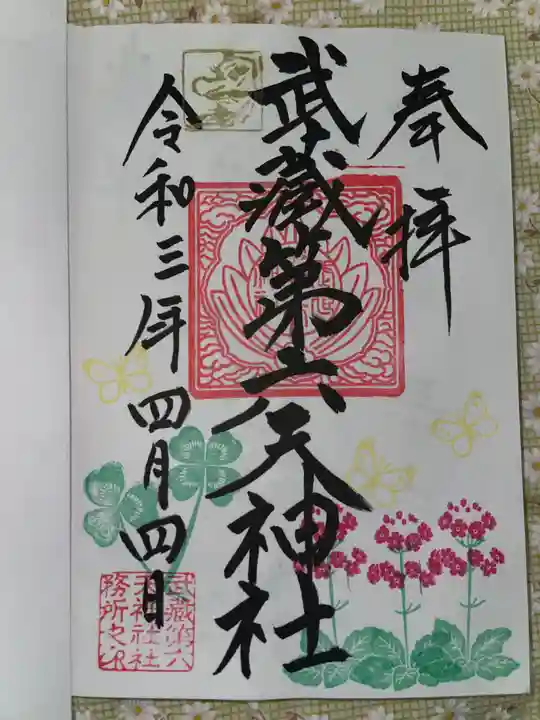 奉拝
武蔵第六天神社
令和三年四月四日
武蔵第六
天神社社
務所之印